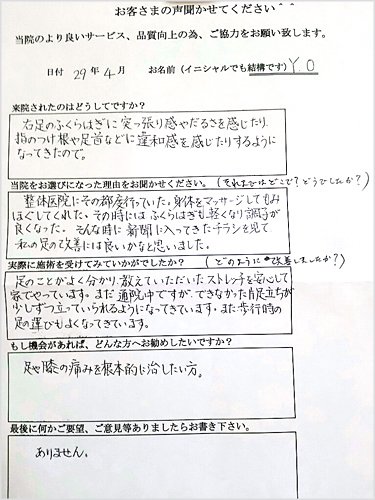 お客さまの声聞かせてください^^
当院のより良いサービス、品質向上の為、ご協力をお願い致します。
日付 29年4月 お名前(イニシャルでも結構です) Y.O
来院されたのはどうしてですか?
右足のふくらはぎに突っ張り感やだるさを感じたり
指のつけ根や足首などに違和感を感じたりするように
なってきたので。
当院をお選びになった理由をお聞かせください。(それまではどこで?どうでしたか?)
整体医院にその都度行っていた。身体をマッサージしてもみ
ほぐしてくれた。その時にはふくらはぎも軽くなり調子が
良くなった。そんな時に新聞に入ってきたチラシを見て
私の足の改善には良いかなと思いました。
実際に施術を受けてみていかがでしたか?(どのように改善しましたか?)
足のことがよく分かり、教えていただいたストレッチを安心して
家でやっています。まだ通院中ですが、できなかった片足立ちが
少しずつ立っていられるようになってきています。また歩行時の
足の運びもよくなってきています。
もし機会があれば、どんな方へお勧めしたいですか?
足や膝の痛みを根本的に治したい方。
最後に何かご要望、ご意見等ありましたらお書き下さい。
ありません。